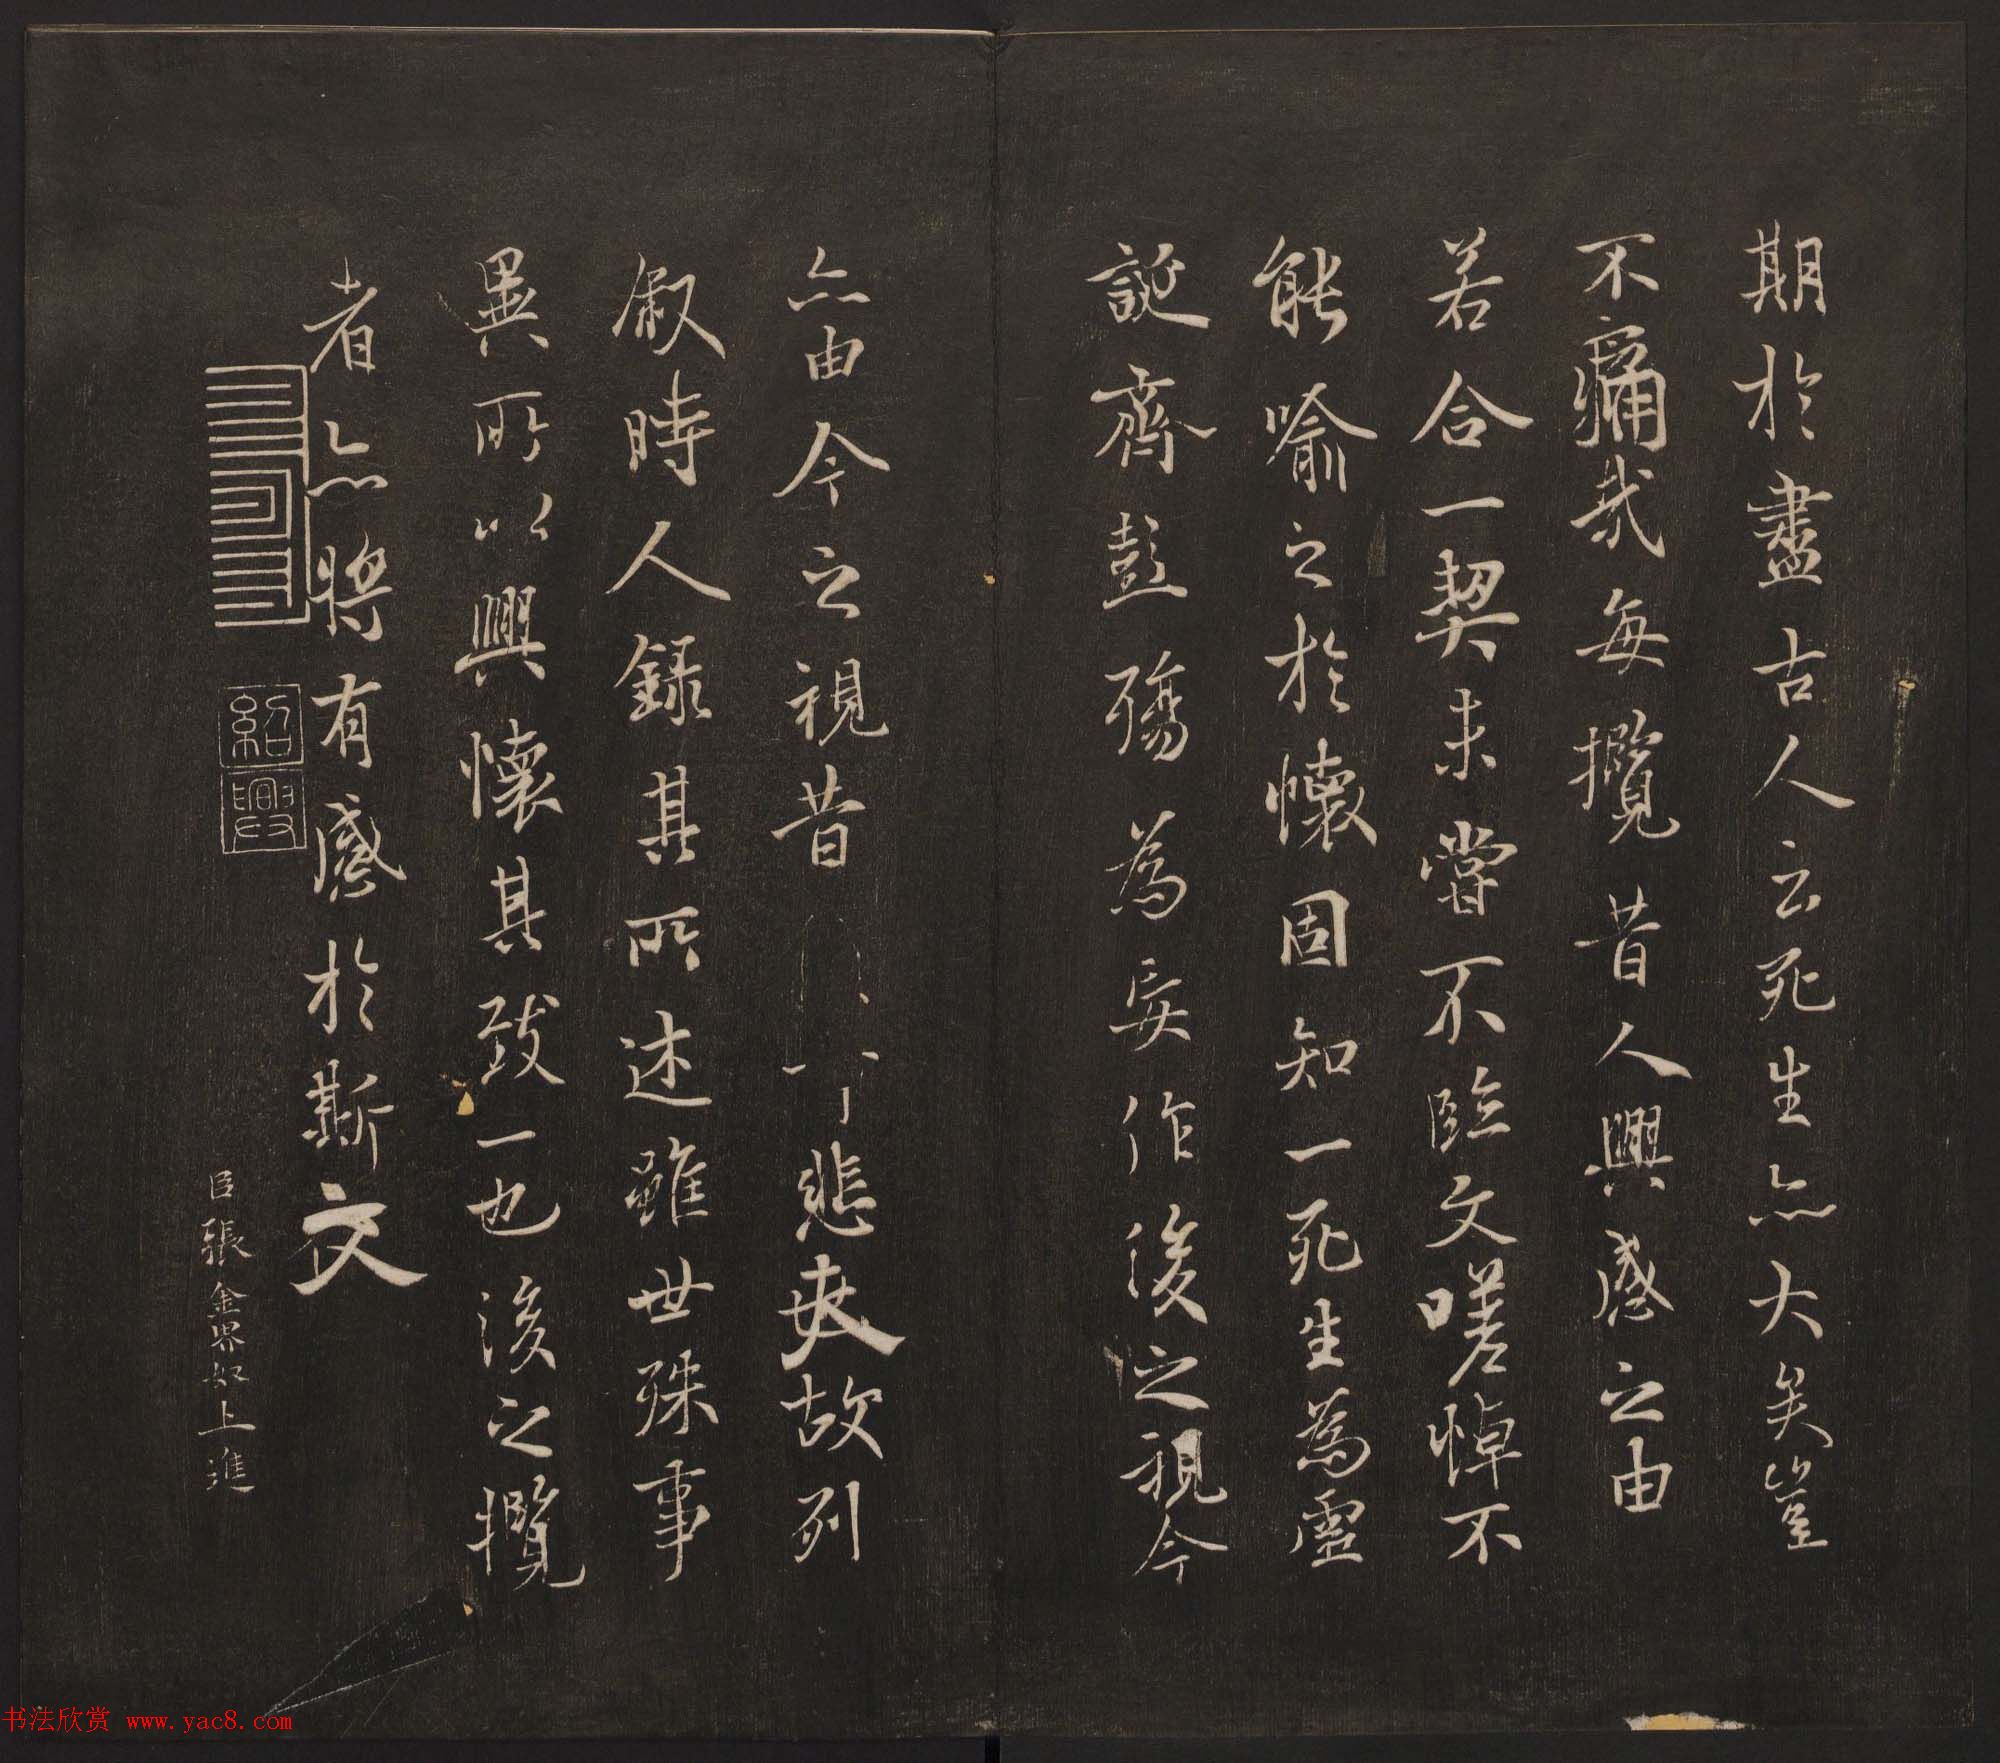 期於盡古人云死生亦大矣豈
不痛哉每攬昔人興感之由
若合一契未嘗不臨文嗟悼不
能喻之於懷固知一死生為虛
誕齊彭殤為妄作後之視今
亦由今之視昔 悲夫故列
叙時人錄其所述雖世殊事
異所以興懷其致一也後之攬
者亦將有感於斯文
紹興
臣張金界奴上進
书法欣赏 www.yac8.com